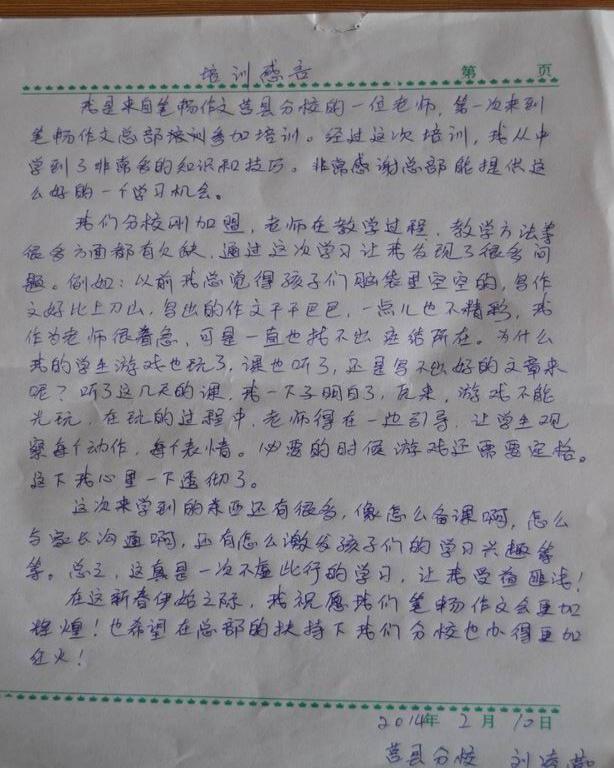 培训感言
第 页
我是来自笔畅作文莒县分校的一位老师，第一次来到
笔畅作文总部培训参加培训。经过这次培训，我从中
学到了非常多的知识和技巧。非常感谢总部能提供这
么好的一个学习机会。
我们分校刚加盟，老师在教学过程，教学方法等
很多方面都有欠缺，通过这次学习让我发现了很多问
题。例如：以前我总觉得孩子们脑袋里空空的，写作
文好比上刀山，写出的作文干干巴巴，一点儿也不精彩，我
作为老师很着急，可是一直也找不出症结所在。为什么
我的学生游戏也玩了，课也听了，还是写不出好的文章来
呢？听了这几天的课，我一下子明白了，原来，游戏不能
光玩，在玩的过程中，老师得在一边引导，让学生观
察每个动作，每个表情。必要的时候游戏还需要定格。
这下我心里一下透彻了。
这次来学到的东西还有很多，像怎么备课啊，怎么
与家长沟通啊，还有怎么激发孩子们的学习兴趣等
等。总之，这真是一次不虚此行的学习，让我受益匪浅！
在这新春伊始之际，我祝愿我们笔畅作文会更加
辉煌！也希望在总部的扶持下我们分校也办得更加
红火！
2014年 2月 10日
莒县分校 刘